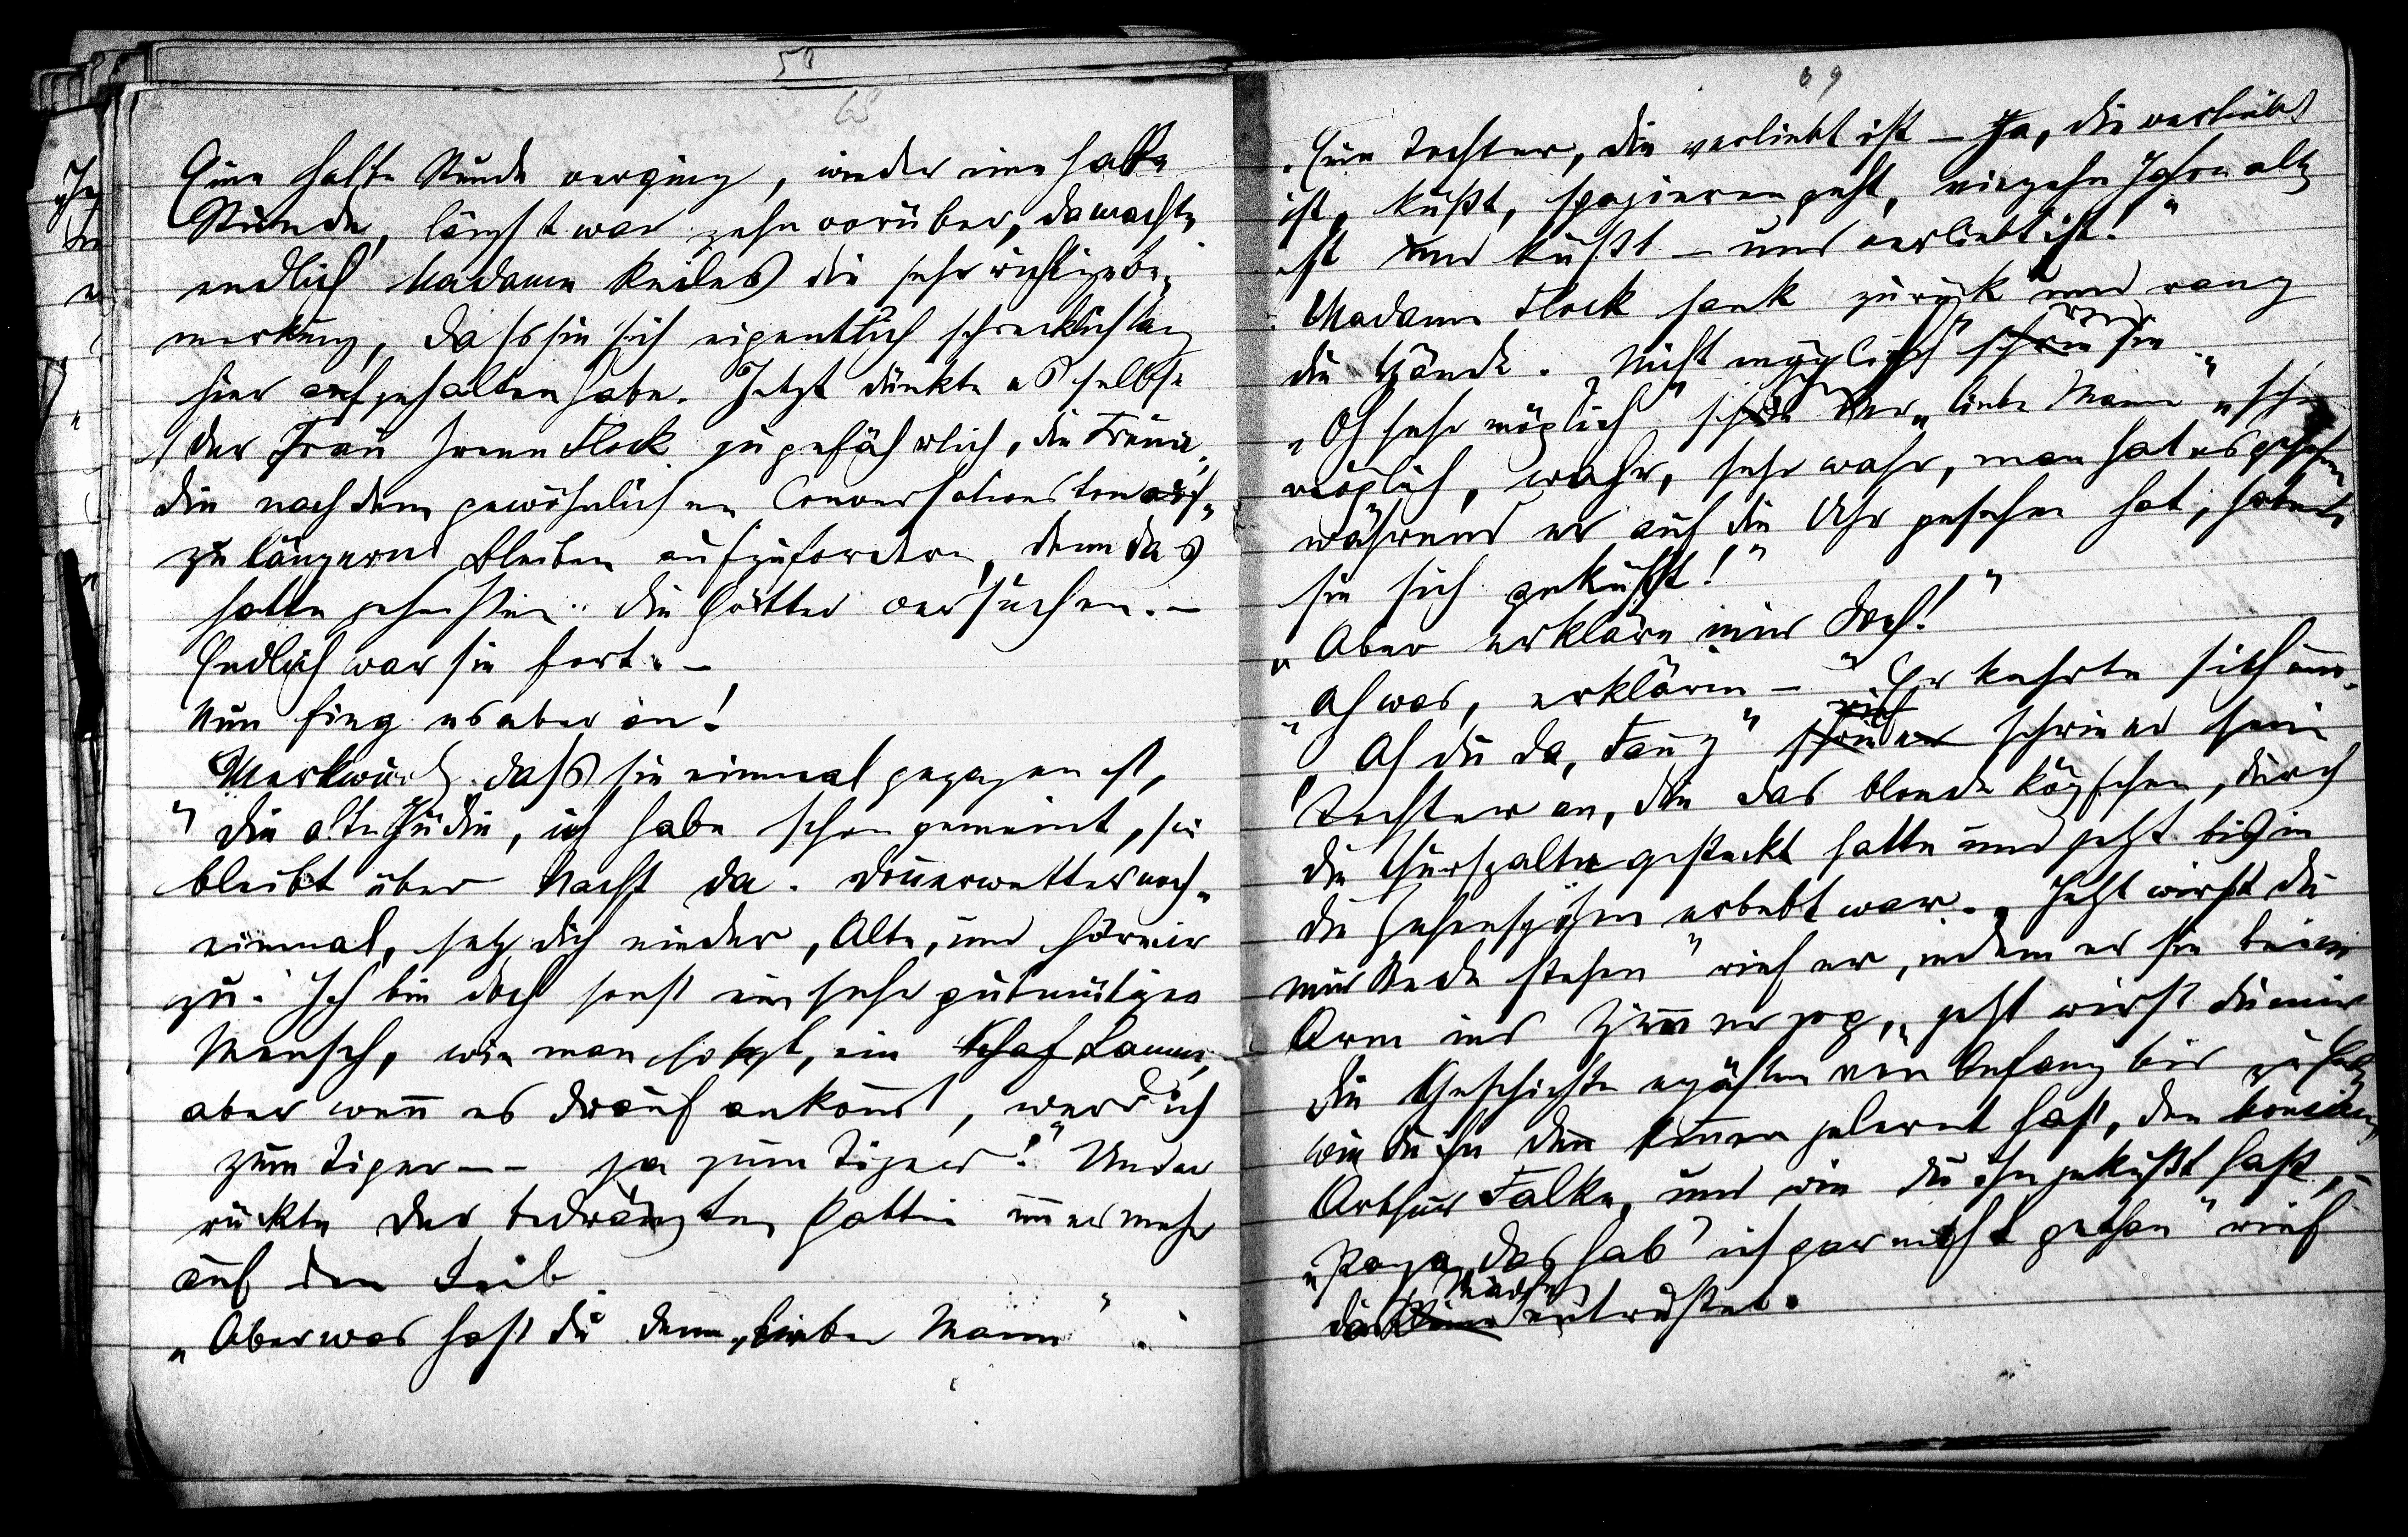 50
68
Eine halbe Stunde verging, wieder eine halbe
Stunde, längst war zehn vorüber, da machte
endlich Madame Keiles die sehr richtige Be-
merkung, dass sie sich eigentlich schrecklich lang
hier aufgehalten habe. Jetzt dünkte es selbst
der Frau Irene Flock zu gefährlich, die Freun-
din nach dem gewöhnlichen Conversationston
zu längerm Bleiben aufzufordern, denn das
hätte geheißen: die Götter versuchen. –
Endlich war sie fort. –
Nun fing es aber an!
„Merkwürdig, dass sie einmal gegangen ist,
die alte Jüdin, ich habe schon gemeint, sie
bleibt über Nacht da. Donnerwetter noch-
einmal, setz dich nieder, Alte, und hör mir
zu. Ich bin doch sonst ein sehr gutmütiger
Mensch, wie man so sagt, ein Schaf Lamm,
aber wenn es drauf ankommt, werd ich
zum Tiger – – ja zum Tiger!" Und er
rückte der bedrängten Gattin immer mehr
auf den Leib.
„Aber was hast du denn, lieber Mann"
69
„Eine Tochter, die verliebt ist – Ja, die verliebt
ist, küßt, spazieren geht, vierzehn Jahre alt
ist und küßt – und verliebt ist!"
Madame Flock sank zurück und rang
die Hände. „Nicht möglich" schrie sie
„Oh sehr möglich" schrie der „liebe Mann" „sehr
möglich, wahr, sehr wahr, man hat es gesehen
während er auf die Uhr gesehen hat, haben
sie sich geküßt!"
„Aber erkläre mir doch!"
„Ah was, erklären –" Er kehrte sich um.
„Ah du da, Fanny" rief schrie er schrie er seine
Tochter an, die das blonde Köpfchen, durch
die Thürspalte gesteckt hatte und jetzt bis in
die Zehenspitzen erbebt war. „Jetzt wirst du
mir Rede stehen" rief er, indem er sie beim
Arm ins Zimmer zog, „jetzt wirst du mir
die Geschichte erzählen von Anfang bis zu Ende
wie du ihn denn kennen gelernt hast, den Monsieur
Arthur Falke, und wie du ihn geküßt hast, –
„Papa, das hab' ich gar nicht gethan" rief
das Kleine Mädchen entrüstet.